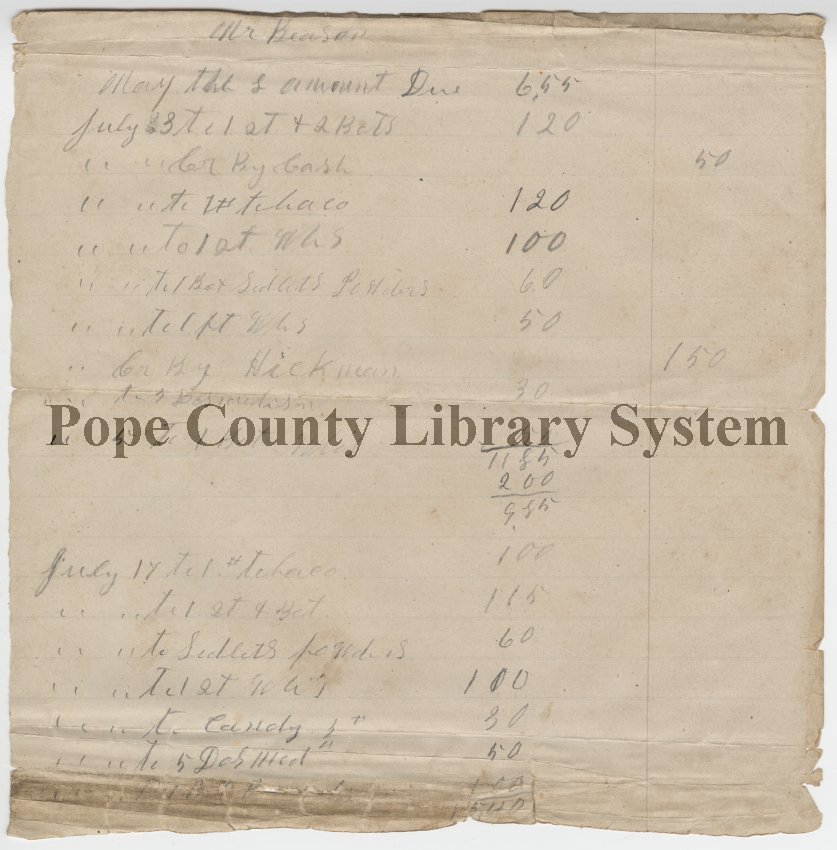 Mr Beason
May the amount Due 6,55
July 23 to 1 qt & 2 Bets 120
" " Cr By Cash 50
" " to 1# tobaco 120
" " to 1 qt Whs 100
" " to 1 Box Sedlets Powders 60
" " to 1 pt Whs 50
" Cr By Hickman 150
" " to 3 30
Pope County Library System
" to
1185
200
9,85
July 17 to 1# tobaco 100
" " to 1 qt & Bet 115
" " to Sedlets powders 60
" " to 1 qt Whs 100
" " to Candy # 30
" " to 5 Dos Med " 50
100
1540